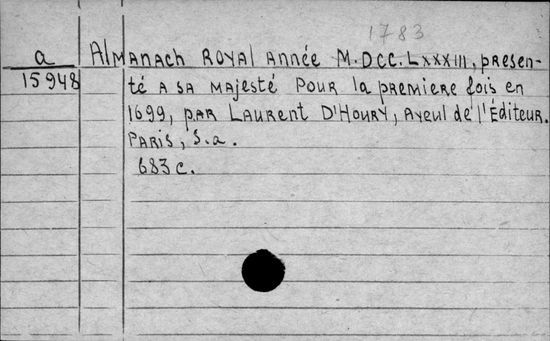 1783
a Almanach Royal année M.DCC.LXXXIII, presen-
15948 té a sa majesté pour la premiere fois en
1699, par Laurent D'Houry, ayeul de l'Éditeur.
Paris, s.a.
683 c.